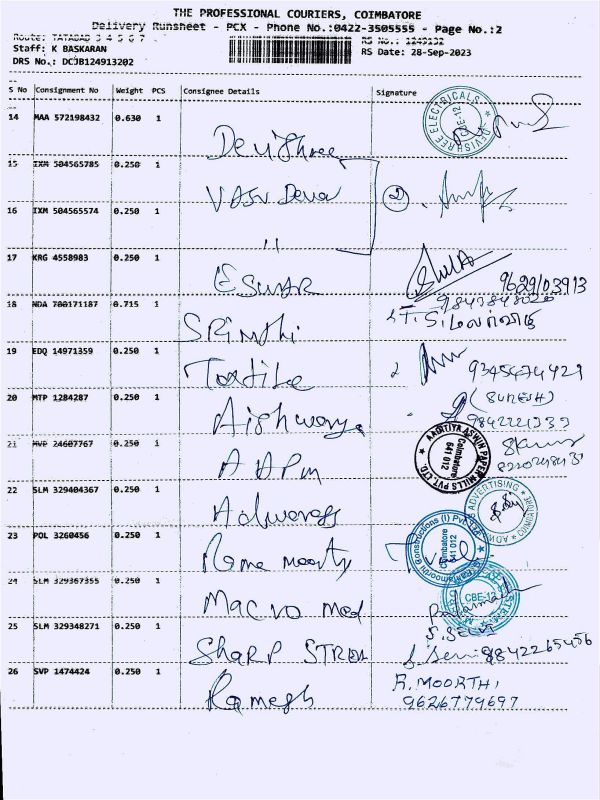 THE PROFESSIONAL COURIERS, COIMBATORE
Delivery Runsheet - PCX - Phone No.:0422-3505555 - Page No.:2
Route: TATABAD 3 4 5 6 7
RS No.: 1249132
Staff: K BASKARAN
RS Date: 28-Sep-2023
DRS No.: DCJB124913202
S No Consignment No Weight PCS Consignee Details Signature
14 MAA 572198432 0.630 1
DEVISHREE ELECTRICALS CBE-12
Devishree
15 IXM 504565785 0.250 1
VASU Deva 2
16 IXM 504565574 0.250 1
"
17 KRG 4558983 0.250 1
ESWAR
9629103913
18 NDA 700171187 0.715 1
Srimthi
19 EDQ 14971359 0.250 1
Textile
20 MTP 1284287 0.250 1
(SURESH)
Aishwarya
21 MVP 24607767 0.250 1
AADITIYA ASWIN PAPER MILLS PVT. LTD. Coimbatore 641 012
AAPM
22 SLM 329404367 0.250 1
ADVERTISING
Adwaress
23 POL 3260456 0.250 1
Ramamoorthi Constructions (I) Pvt. Ltd. Coimbatore 641 012
Rama moorty
24 SLM 329367355 0.250 1
CBE-12
Macro Med
S. SELVI
25 SLM 329348271 0.250 1
SHARP STREM 9842265456
26 SVP 1474424 0.250 1
R. MOORTHI
Ramesh 9626779697